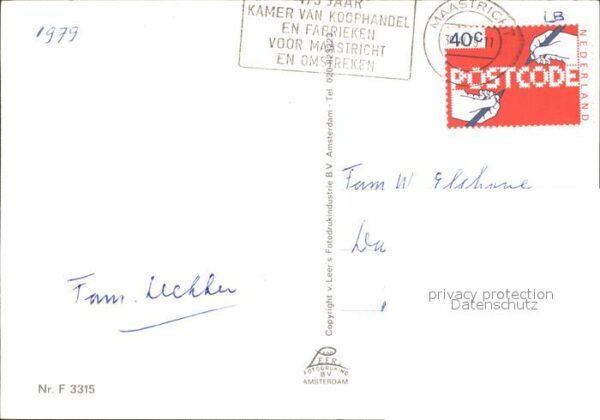 1979
JAAR
KAMER VAN KOOPHANDEL
EN FABRIEKEN
VOOR MAASTRICHT
EN OMSTREKEN
MAASTRICHT
40c
POSTCODE
NEDERLAND
Fam W
Da
Fam.
privacy protection
Datenschutz
Copyright v. Leer's Fotodrukindustrie B.V. Amsterdam - Tel. 020
LEER'S
FOTODRUKIND
B.V.
AMSTERDAM
Nr. F 3315